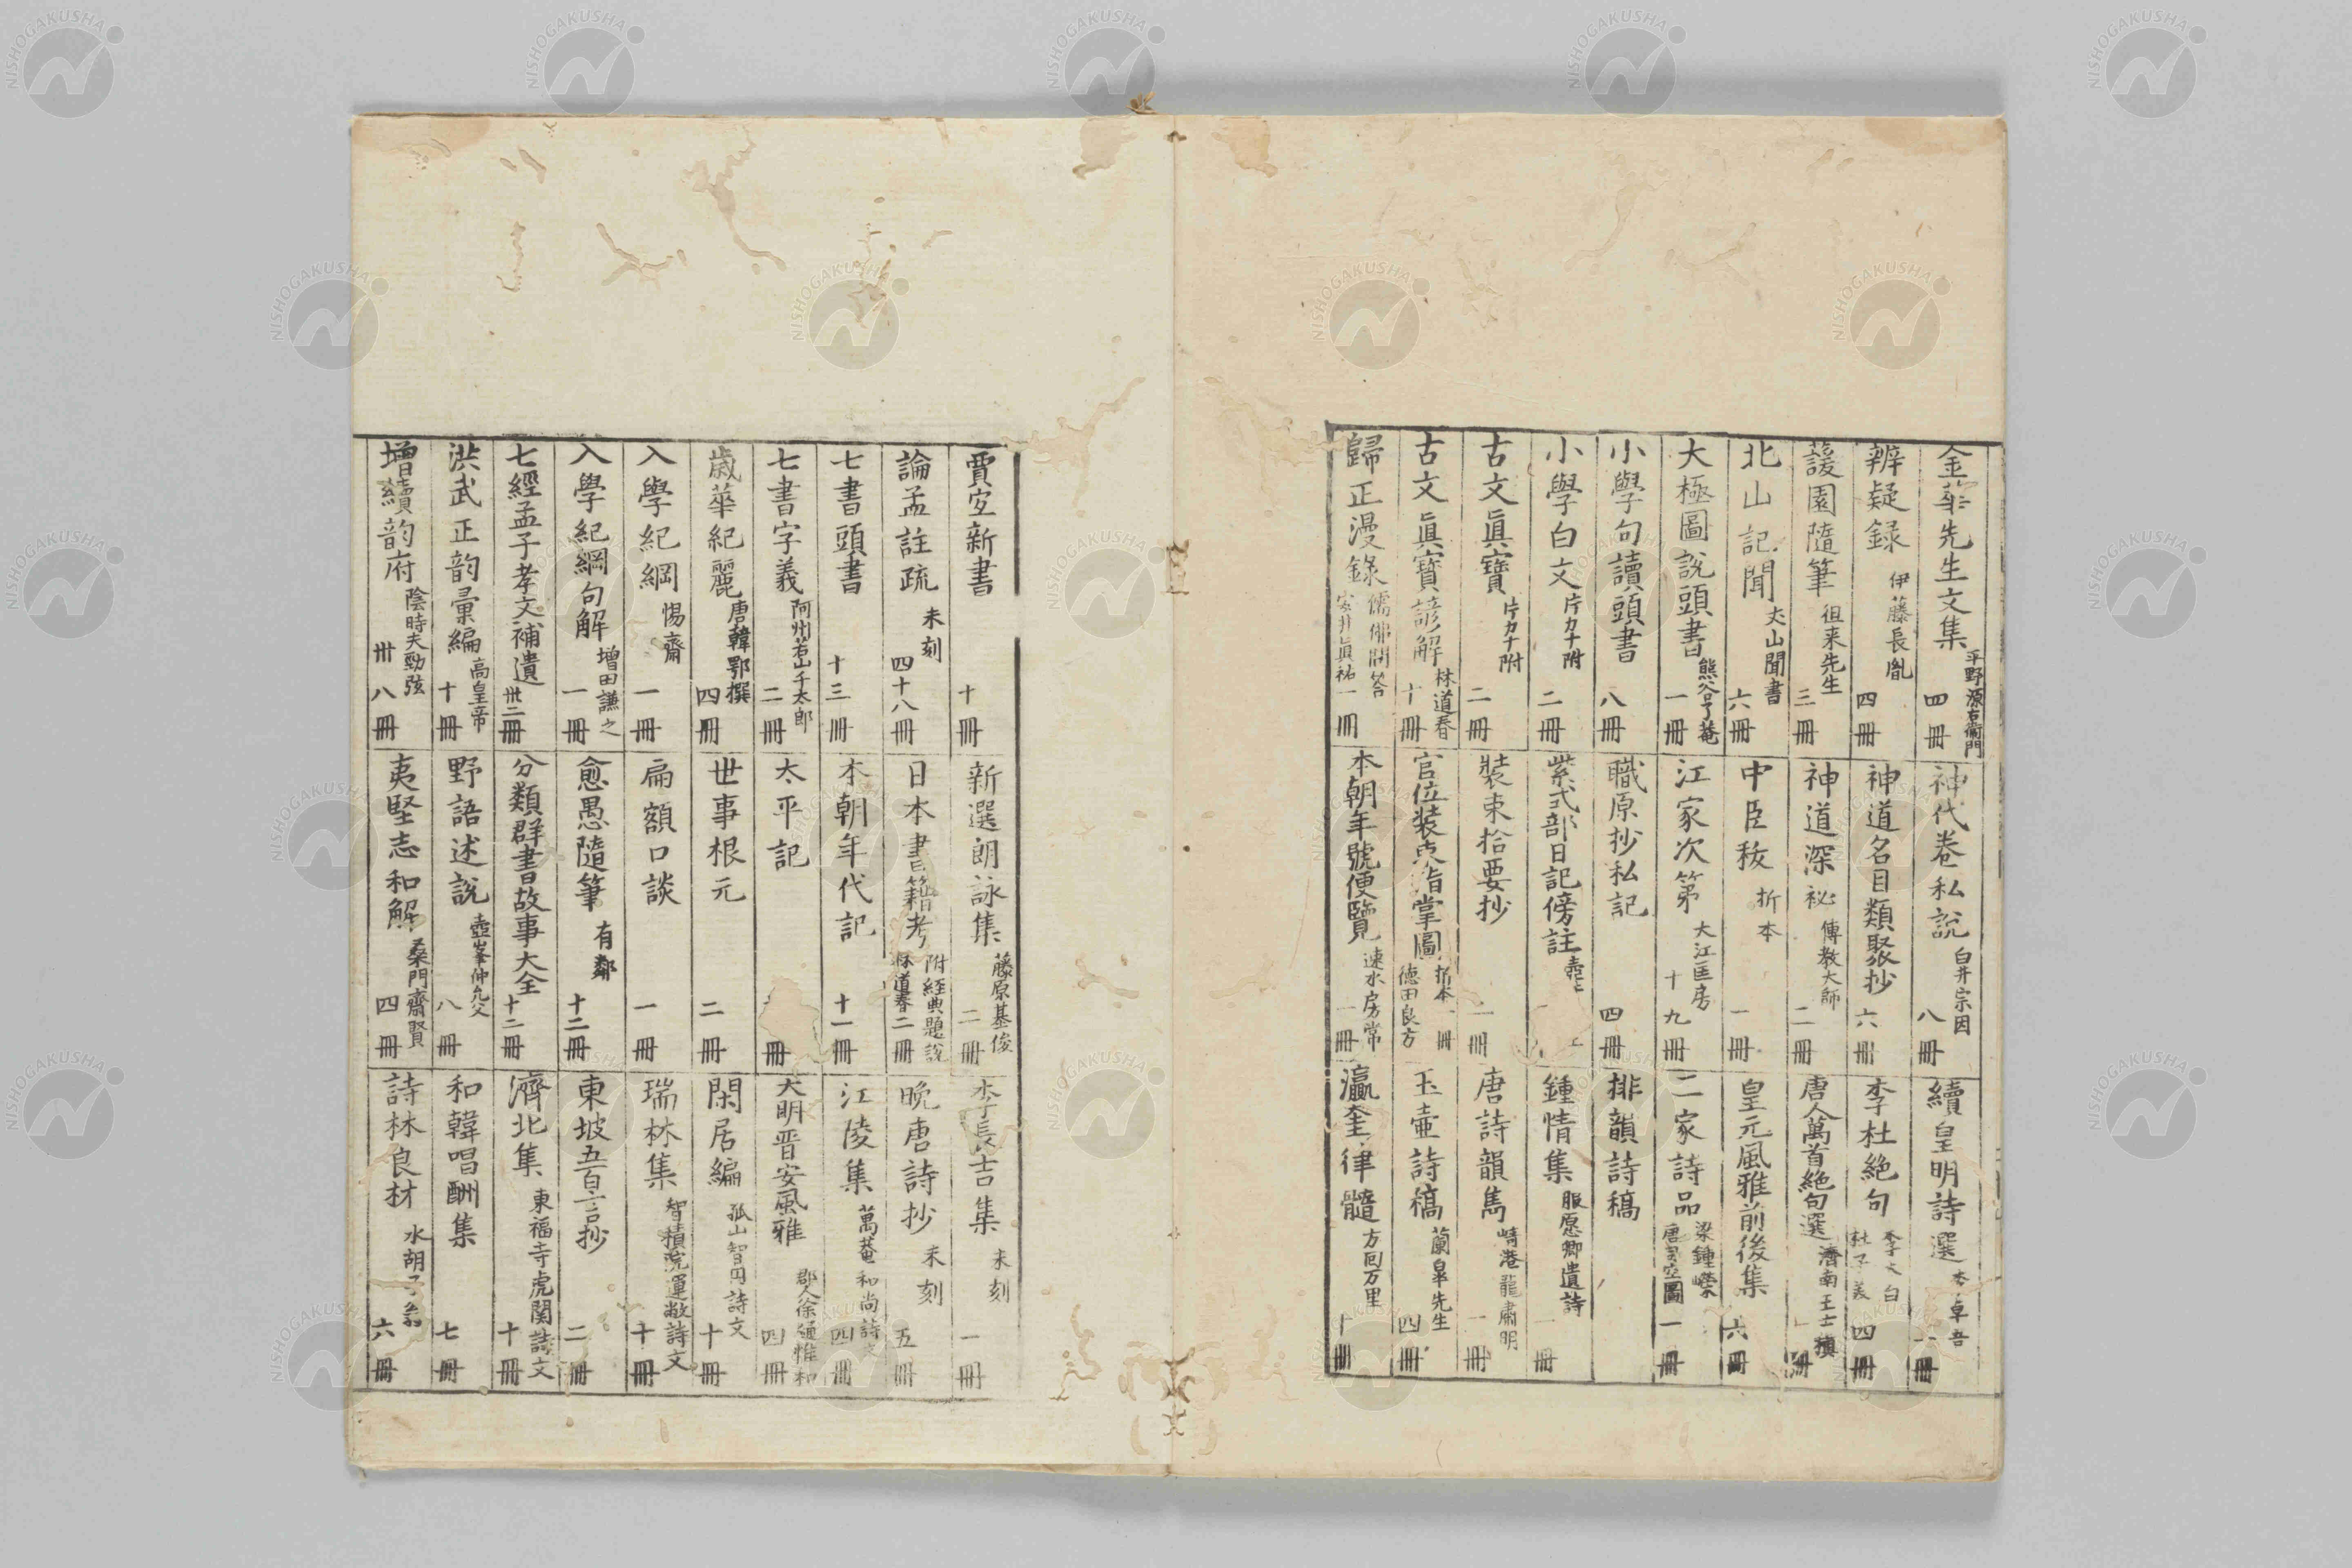 金華先生文集 平野源右衞門 四冊
辨疑録 伊藤長胤 四冊
護園隨筆 徂来先生 三冊
北山記聞 大山聞書 六冊
大極圖説頭書 熊谷了菴 一冊
小學句讀頭書 八冊
小學白文 片カナ附 二冊
古文眞寶 片カナ附 二冊
古文眞寶諺解 林道春 十冊
歸正漫錄 儒佛問答 安井眞祐 一冊
神代巻私說 白井宗因 八冊
神道名目類聚抄 六冊
神道深秘 傳教大師 二冊
中臣秡 折本 一冊
江家次第 大江匡房 十九冊
職原抄私記 四冊
紫式部日記傍註 壺井
装束拾要抄 二冊
官位装束指掌圖 折本 德田良方 一冊
本朝年號便覽 速水房常 一冊
續皇明詩選 李卓吾 一冊
李杜絶句 李太白 杜子美 四冊
唐人萬首絶句選 濟南王士禛 冊
皇元風雅前後集 六冊
二家詩品 梁鍾嶸 唐司空圖 一冊
排韻詩稿
鍾情集 服愿卿遺詩 一冊
唐詩韻雋 崎港龍肅明 一冊
玉壷詩稿 蘭皐先生 四冊
瀛奎律髓 方囘万里 十冊
賈宜新書 十冊
論孟註疏 未刻 四十八冊
七書頭書 十三冊
七書字義 阿州若山千太郎 二冊
歳華紀麗 唐韓鄂撰 四冊
入學紀綱 惕齋 一冊
入學紀綱句解 増田謙之 一冊
七經孟子孝文補遺 卅二冊
洪武正韵彙編 高皇帝 十冊
增續韵府 陰時夫勁弦 卅八冊
新選朗詠集 藤原基俊 二冊
日本書籍考 附經典題説 林道春 二冊
本朝年代記 十一冊
太平記 冊
世事根元 二冊
扁額口談 一冊
愈愚隨筆 有鄰 十二冊
分類群書故事大全 十二冊
野語述說 壺峯仲允父 八冊
夷堅志和解 桑門齋賢 四冊
李長吉集 未刻 一冊
晩唐詩抄 未刻 五冊
江陵集 萬菴和尚詩文 四冊
大明晋安風雅 郡人徐𤊹惟和 四冊
閑居編 孤山智円詩文 十冊
瑞林集 智積院運敞詩文 十冊
東坡五百言抄 二冊
濟北集 東福寺虎関詩文 十冊
和韓唱酬集 七冊
詩林良材 水胡子 六冊
NISHOGAKUSHA